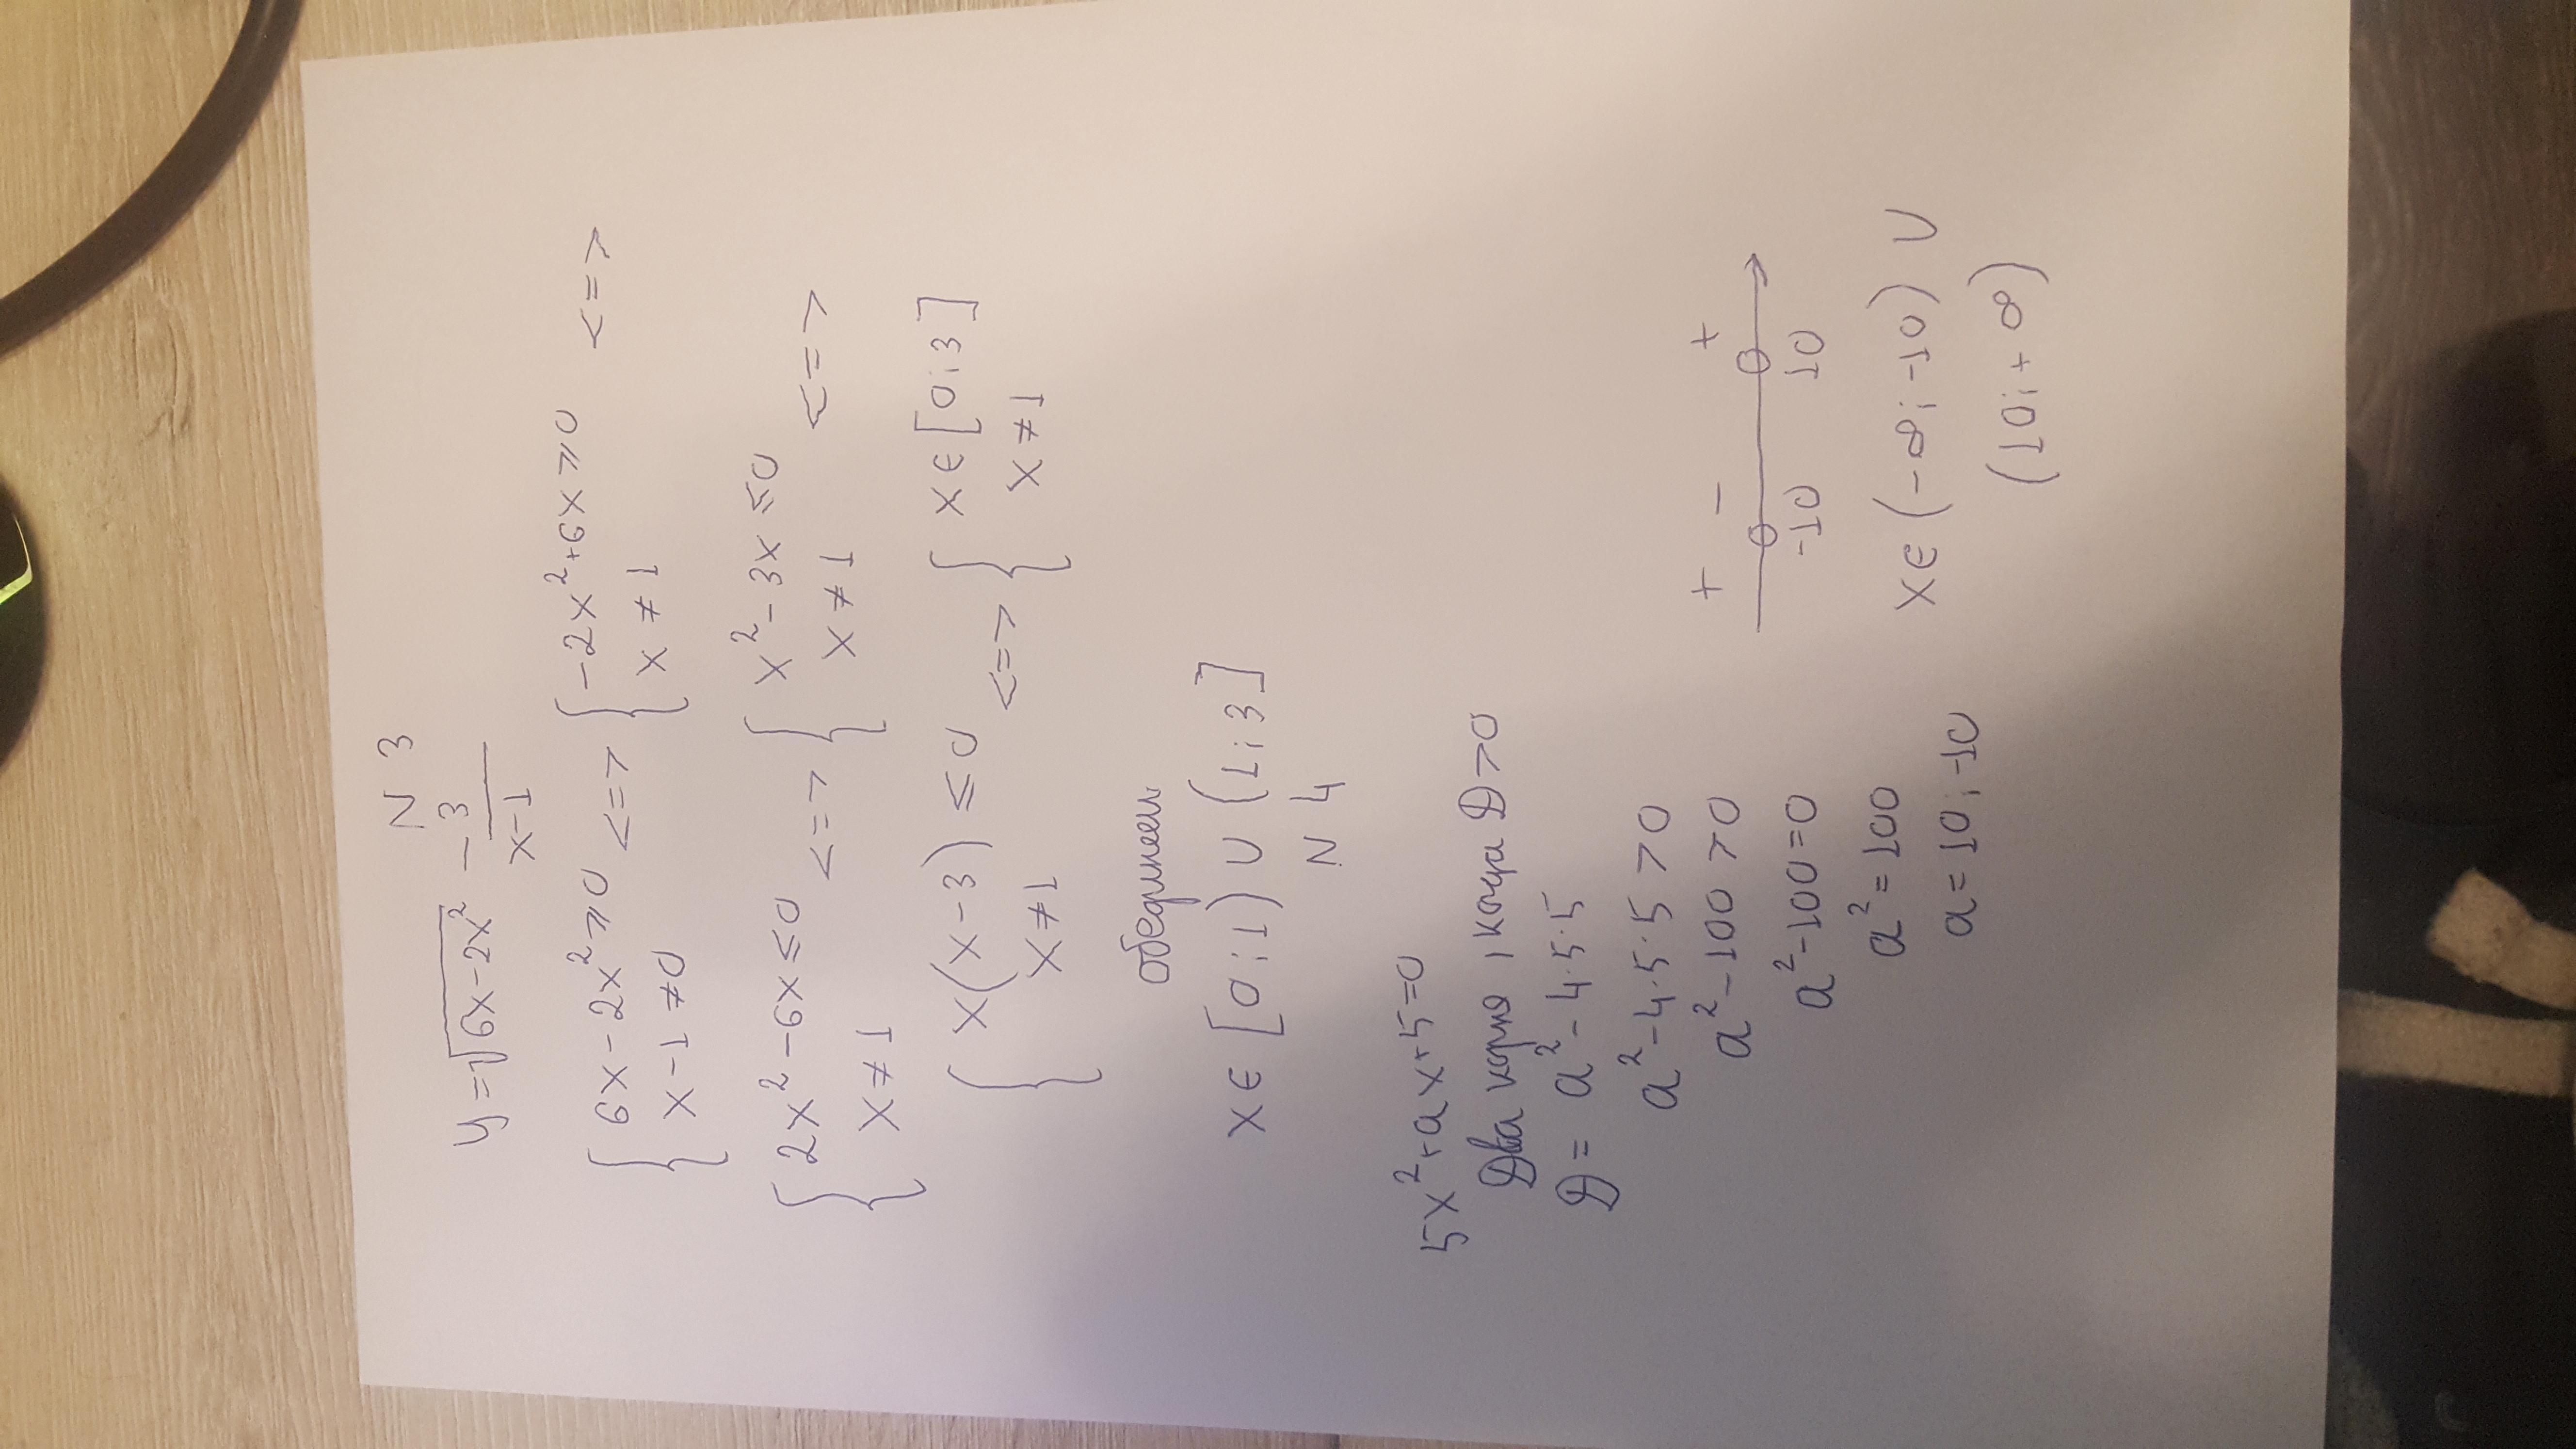 N 3
y = √6x-2x² - 3/x-1
{ 6x - 2x² ⩾ 0 <=> { -2x² + 6x ⩾ 0 <=>
x - 1 ≠ 0 x ≠ 1
{ 2x² - 6x ≤ 0 <=> { x² - 3x ≤ 0 <=>
x ≠ 1 x ≠ 1
{ x(x-3) ≤ 0 <=> { x ∈ [0;3]
x ≠ 1 x ≠ 1
обединяем
x ∈ [0;1) ∪ (1;3]
N 4
5x² + ax + 5 = 0
Два корня, когда D > 0
D = a² - 4·5·5
a² - 4·5·5 > 0
a² - 100 > 0
a² - 100 = 0
a² = 100
a = 10; -10
+ - +
-10 10
x ∈ (-∞; -10) ∪
(10; +∞)